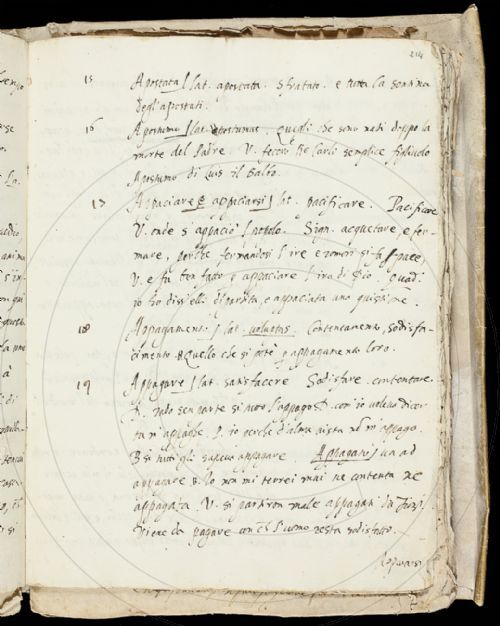 214
15 Apostata lat. apostata. Sfratato. e tutta la
degli apostati.
16 Apostumo lat. postumus. Quegli che sono nati doppo la
morte del Padre. V. fecero Re Carlo semplice figliuolo
Apostumo di Luis il Balbo.
17 Appaciare e appaciarsi lat. pacificare. Pacificare
V. onde s appaciò l popolo. Sign. acquetare e fer-
mare, perche fermandosi l ire e romori si fa pace,
V. e fu ben fatto p appaciare l ira di Dio.
io ho dipartita, e appaciata una quistione.
18 Appagamento lat. voluptas. Contentamento, sodisfa-
cimento. Quello che si potè p appagamento loro.
19 Appagare lat. satisfacere Sodisfare. contentare.
D. con io voleva dicer
ta m appaghe. P. io perche d'alma vista nõ m appago.
B si tutti gli sapeva appagare Appagato un ad
appagare B. Io non mi terrei mai ne contenta ne
appagata V. si partiron male appagati da
Viene da pagare con l'uomo resta sodisfatto.